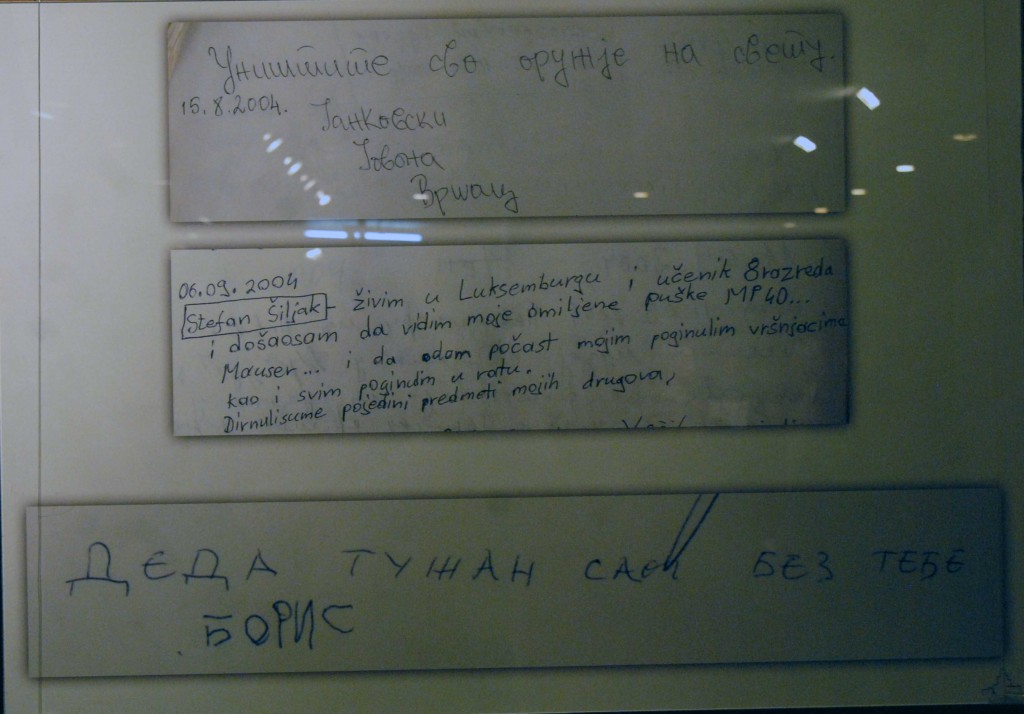 Уништите сво оружје на свету.
15.8.2004. Јанковски
Ивона
Вршац
06.09.2004
Stefan Šiljak - živim u Luksemburgu i učenik 8razreda
i došaosam da vidim moje omiljene puške MP40...
Mauser... i da odam počast mojim poginulim vršnjacima
kao i svim poginulim u ratu.
Dirnulisume pojedini predmeti mojih drugova,
ДЕДА ТУЖАН САМ БЕЗ ТЕБЕ
БОРИС